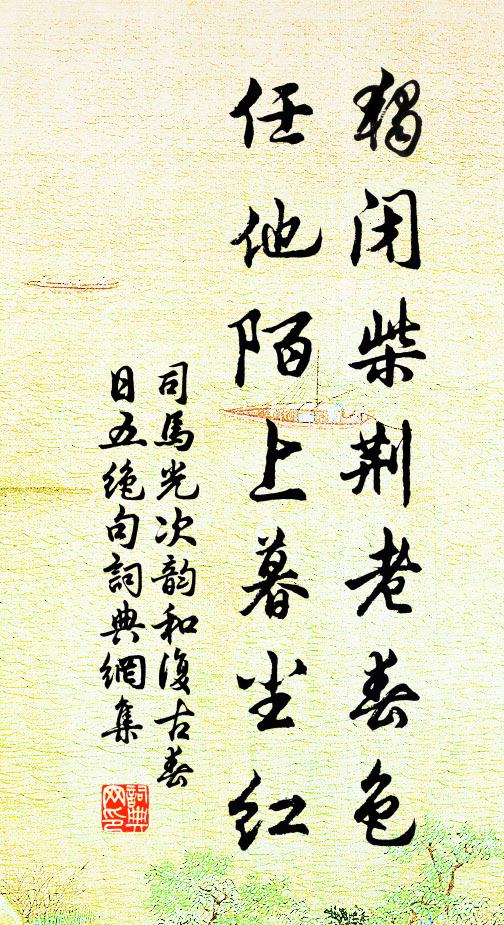 独闭柴荆老春色
任他陌上暮尘红
司馬光次韵和復古春
日五绝句詞典網集
詞典
网印